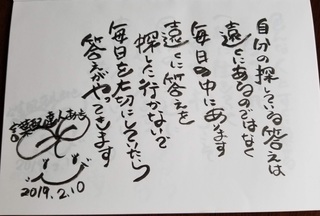 自分の探している答えは
遠くにあるのではなく
毎日の中にあります
遠くに答えを
探しに行かないで
毎日を大切にしていたら
答えがやってきます
2019.2.10